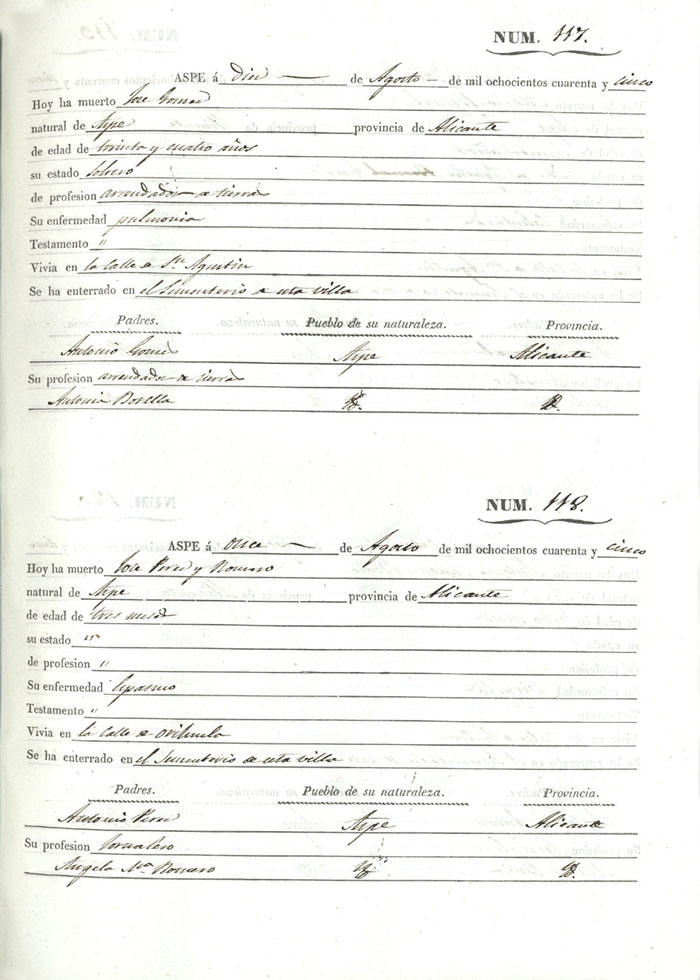 NUM. 117.
ASPE á Dies de Agosto de mil ochocientos cuarenta y cinco
Hoy ha muerto Jose Gomes
natural de Aspe provincia de Alicante
de edad de treinta y cuatro años
su estado Soltero
de profesion arrendador de tierra
Su enfermedad pulmonia
Testamento "
Vivia en la Calle de Sn. Agustin
Se ha enterrado en el Sementerio de esta villa
Padres. Pueblo de su naturaleza. Provincia.
Antonio Gomes Aspe Alicante
Su profesion arrendador de tierra
Antonia Botella
NUM. 118.
ASPE á Once de Agosto de mil ochocientos cuarenta y cinco
Hoy ha muerto Jose Peres y Romero
natural de Aspe provincia de Alicante
de edad de tres meses
su estado "
de profesion "
Su enfermedad Espasmo
Testamento "
Vivia en la Calle de orihuela
Se ha enterrado en el Sementerio de esta villa
Padres. Pueblo de su naturaleza. Provincia.
Antonio Peres Aspe Alicante
Su profesion Jornalero
Angela Ma. Romero